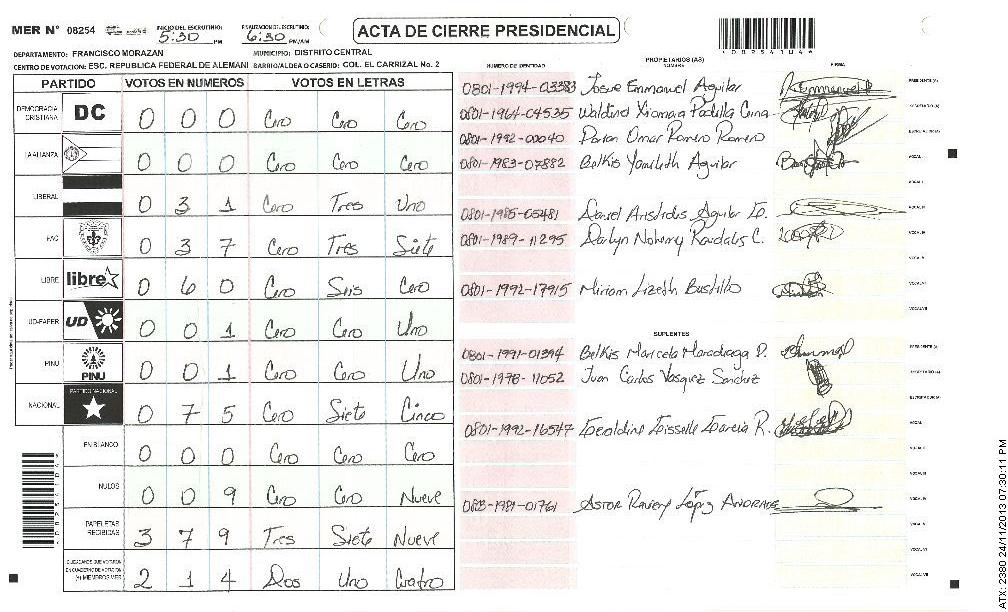 MER N° 08254 INICIO DEL ESCRUTINIO: 5:30 PM FINALIZACION DEL ESCRUTINIO: 6:30 PM/AM ACTA DE CIERRE PRESIDENCIAL
DEPARTAMENTO: FRANCISCO MORAZAN MUNICIPIO: DISTRITO CENTRAL
CENTRO DE VOTACION: ESC. REPUBLICA FEDERAL DE ALEMANI BARRIO/ALDEA O CASERIO: COL. EL CARRIZAL No. 2
PARTIDO VOTOS EN NUMEROS VOTOS EN LETRAS
DEMOCRACIA CRISTIANA DC 0 0 0 Cero Cero Cero
LA ALIANZA 0 0 0 Cero Cero Cero
LIBERAL 0 3 1 Cero Tres Uno
PAC 0 3 7 Cero Tres Siete
LIBRE libre 0 6 0 Cero Seis Cero
UD-FAPER UD 0 0 1 Cero Cero Uno
PINU PINU 0 0 1 Cero Cero Uno
NACIONAL PARTIDO NACIONAL 0 7 5 Cero Siete Cinco
EN BLANCO 0 0 0 Cero Cero Cero
NULOS 0 0 9 Cero Cero Nueve
PAPELETAS RECIBIDAS 3 7 9 Tres Siete Nueve
CIUDADANOS QUE VOTARON EN CUADERNO DE VOTACION (+) MIEMBROS MER 2 1 4 Dos Uno Cuatro
NUMERO DE IDENTIDAD PROPIETARIOS (AS) NOMBRE FIRMA
0801-1994-03383 Josue Emmanuel Aguilar PRESIDENTE (A)
0801-1964-04535 Waldina Xiomara Padilla SECRETARIO (A)
0801-1992-00040 Omar Romero Romero ESCRUTADOR (A)
0801-1983-07882 Belkis Yamileth Aguilar VOCAL I
VOCAL II
0801-1985-05481 Daniel Aristides Aguilar VOCAL III
0801-1989-11295 Darlyn Nohemy C. VOCAL IV
VOCAL V
0801-1992-17915 Miriam Lizeth Bustillo VOCAL VI
VOCAL VII
SUPLENTES
0801-1991-01394 Belkis Marcela Maradiaga D. PRESIDENTE (A)
0801-1978-11052 Juan Carlos Vasquez Sanchez SECRETARIO (A)
ESCRUTADOR (A)
0801-1992-16547 Geraldine Gisselle Garcia R. VOCAL I
VOCAL II
VOCAL III
-1981-01761 López VOCAL IV
VOCAL V
VOCAL VI
VOCAL VII
ATX: 2380 24/11/2013 07:30:11 PM